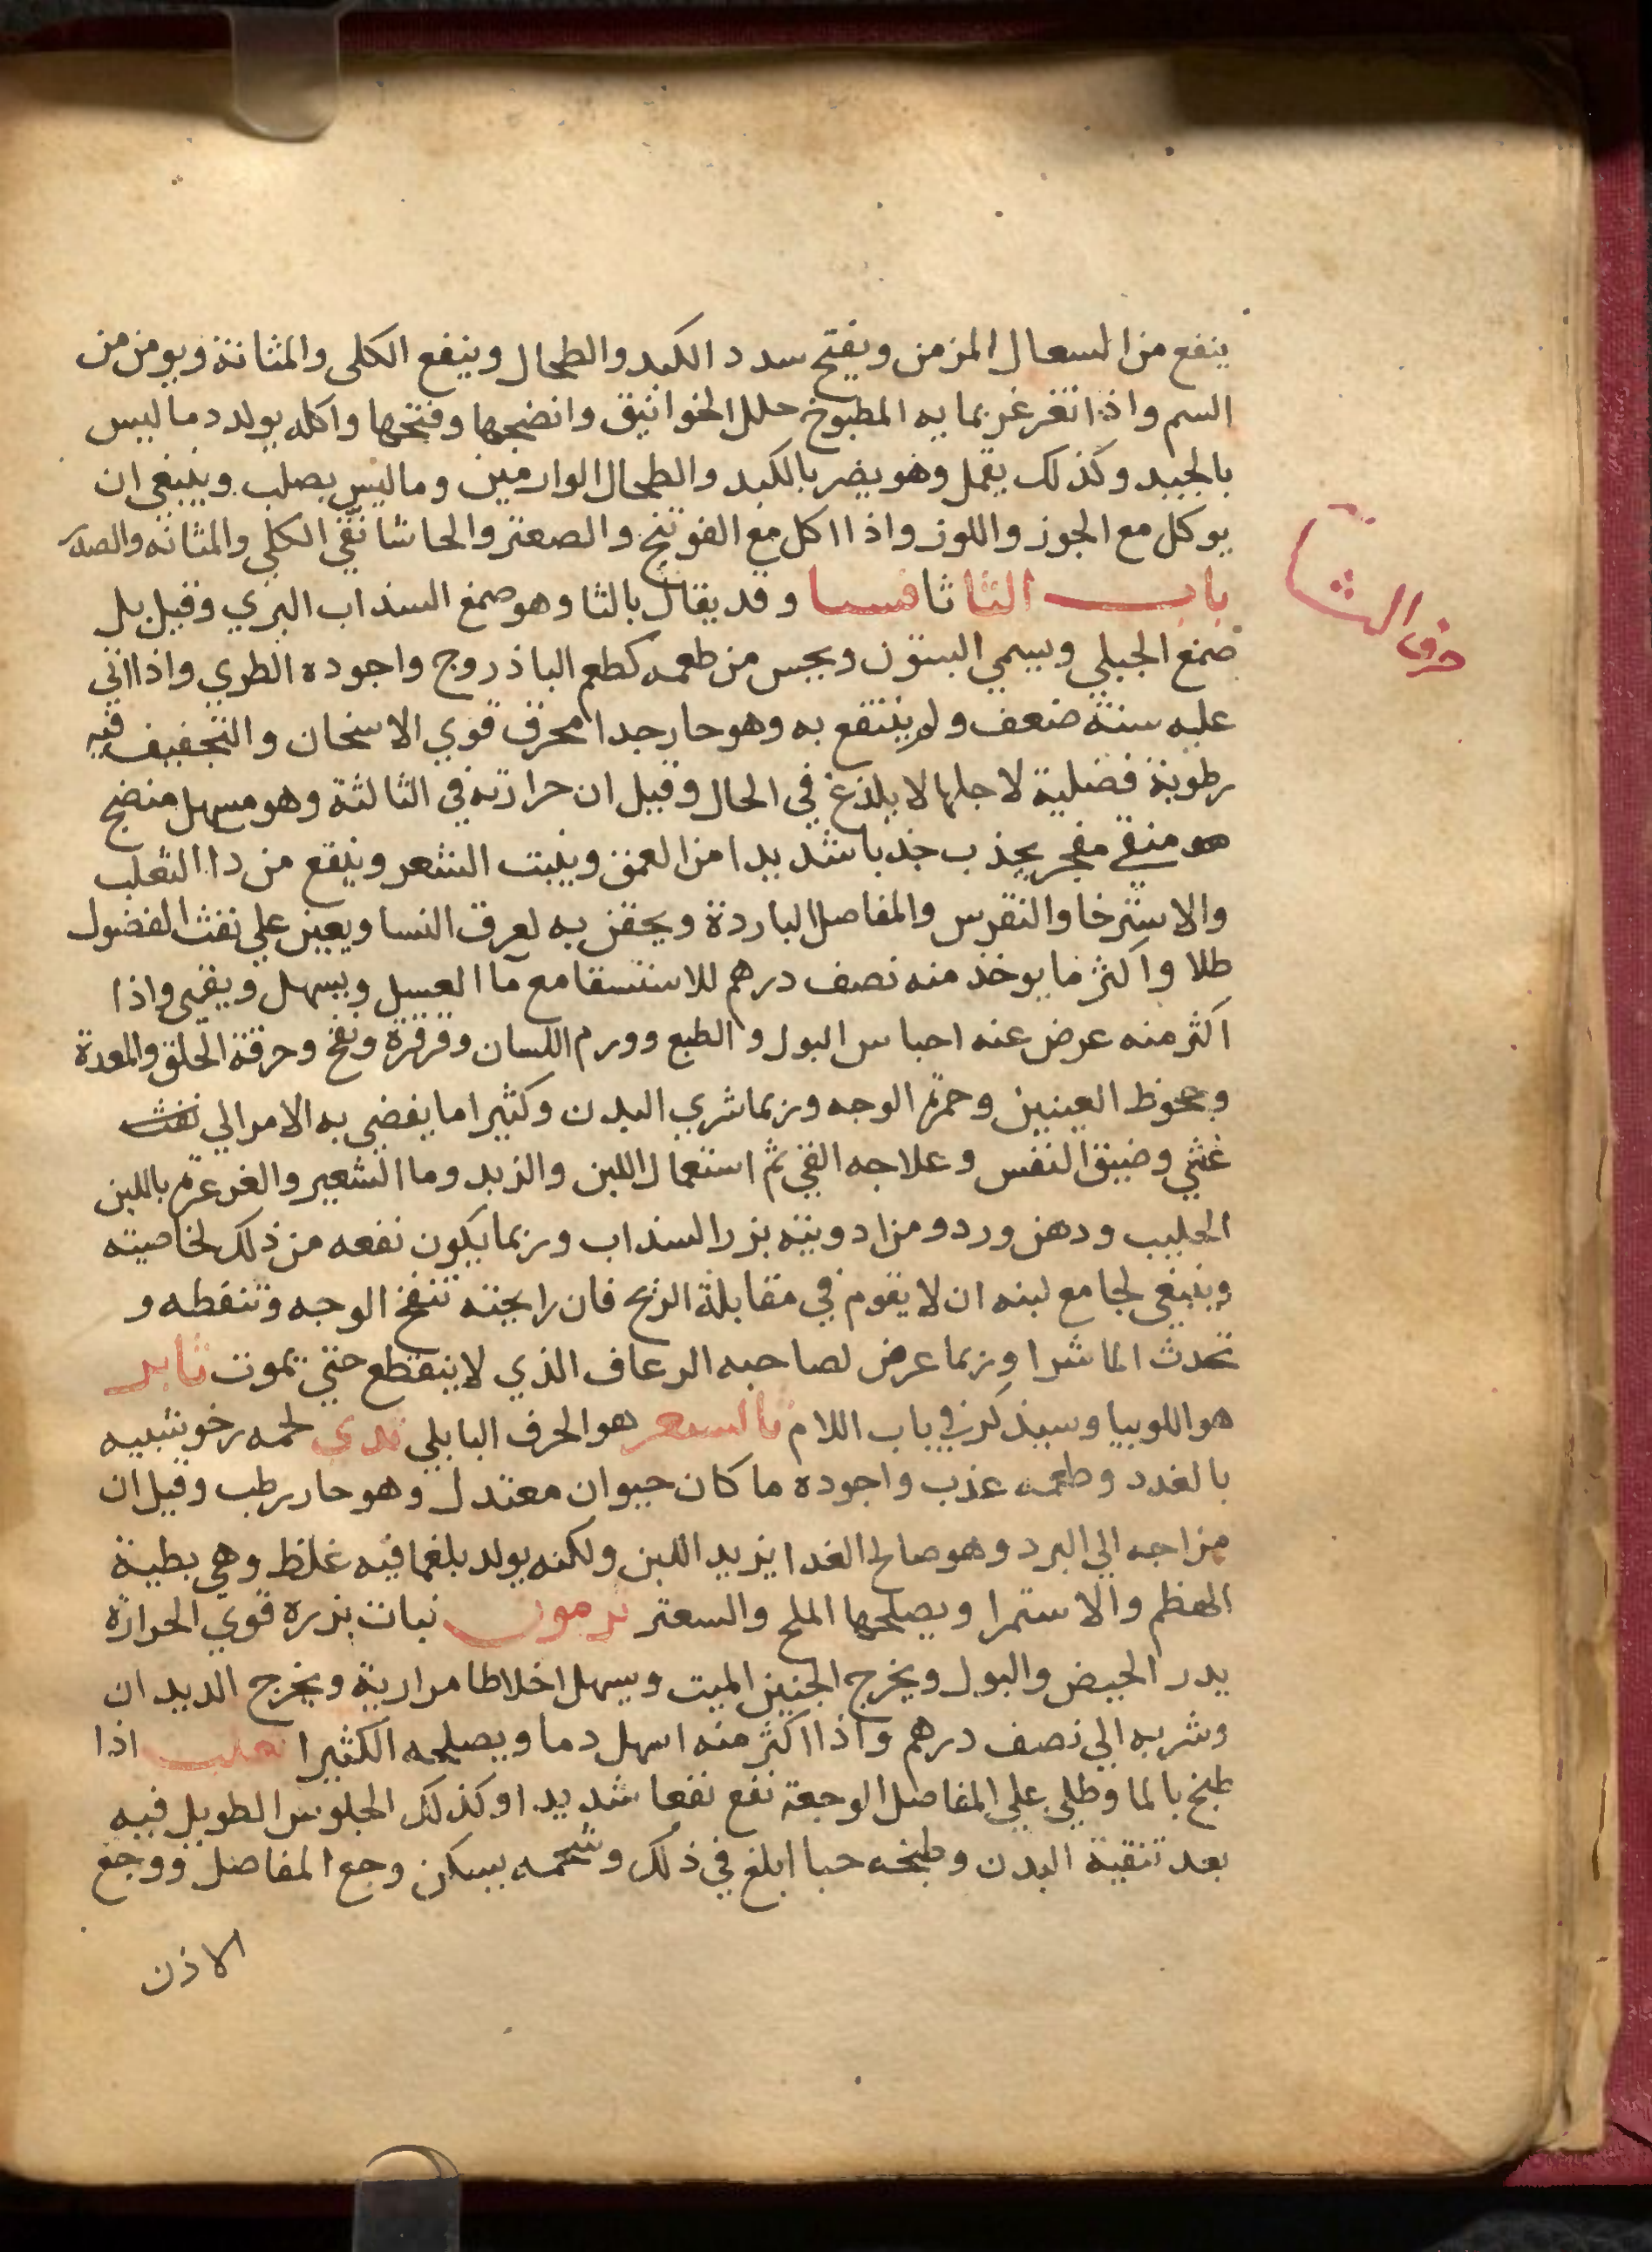 ينفع من السعال المزمن ويفتح سدد الكبد والطحال وينفع الكلى والمثانة ويومن من
السم واذا تغرغر بمايه المطبوخ حلل الخوانيق وانضجها وفتحها واكله يولد دما ليس
بالجيد وكذلك يقمل وهو يضر بالكبد والطحال الوارمين وما ليس بصلب وينبغي ان
يوكل مع الجوز واللوز واذا اكل مع الفوتنج والصعتر والحاشا نقي الكلي والمثانه والصدر
حرف الثا
باب الثا ثافسيا وقد يقال بالتا وهو صمغ السذاب البري وقيل بل
صمغ الجبلي ويسمي الينتون ويحبس من طعمه كطعم الباذروج واجوده الطري واذا اتي
عليه سنة ضعف ولم ينتفع به وهو حار جدا محرق قوي الاسخان والتجفيف فيه
رطوبة فضلية لاجلها لا يلذع في الحال وقيل ان حرارته في الثالثة وهو مسهل منضج
هو منقي مفجر يجذب جذبا شديدا من العمق وينبت الشعر وينفع من دا الثعلب
والاسترخا والنقرس والمفاصل الباردة ويحقن به لعرق النسا ويعين علي نفث الفضول
طلا واكثر ما يوخذ منه نصف درهم للاستسقا مع ما العسل ويسهل ويقيي واذا
اكثر منه عرض عنه احباس البول والطبع وورم اللسان وقرقرة ونفخ وحرقة الحلق والمعدة
وجحوظ العينين وحمرة الوجه وربما شري البدن وكثيرا ما يفضي به الامر الي نفث
غشي وضيق النفس وعلاجه القي ثم استعمال اللبن والزبد وما الشعير والغرغرة باللبن
الحليب ودهن ورد ومن ادويته بزر السذاب وربما يكون نفعه من ذلك لخاصيته
وينبغي لجامع لبنه ان لا يقوم في مقابلة الريح فان رايحته تنفخ الوجه وتنفطه و
تحدث الماشرا وربما عرض لصاحبه الرعاف الذي لا ينقطع حتي يموت ثامر
هو اللوبيا وسيذكر في باب اللام ثالسعر هو الحرف البابلي ثدي لحمه رخو شبيه
بالغدد وطعمه عذب واجوده ما كان حيوان معتدل وهو حار رطب وقيل ان
مزاجه الي البرد وهو صالح الغدا يزيد اللبن ولكنه يولد بلغما فيه غلظ وهي بطية
الهظم والاستمرا ويصلحها الملح والسعتر ثرمون نبات بزره قوي الحرارة
يدر الحيض والبول ويخرج الجنين الميت ويسهل اخلاطا مرارية ويخرج الديدان
وشربه الي نصف درهم واذا اكثر منه اسهل دما ويصلحه الكثيرا ثعلب اذا
طبخ بالما وطلي علي المفاصل الوجعة نفع نفعا شديدا وكذلك الجلوس الطويل فيه
بعد تنقية البدن وطبخه حيا ابلغ في ذلك وشحمه يسكن وجع المفاصل ووجع
الاذن